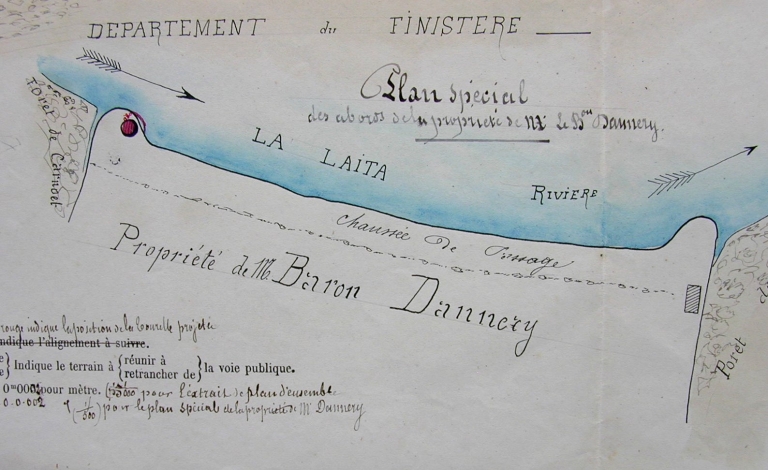 DEPARTEMENT du FINISTERE
Plan spécial
des abords de la propriété de Mr Le Bon Dannery.
Foret de Carnoet
LA LAITA
RIVIERE
chaussée de
Propriété de M. Baron Dannery
Foret
rouge indique la position de la tourelle projetée
indique l'alignement à suivre.
Indique le terrain à { réunir à
retrancher de } la voie publique.
pour mètre. pour l'extrait de plan d'ensemble
0.0.002 (1/500) pour le plan spécial de la propriété de Mr Dannery